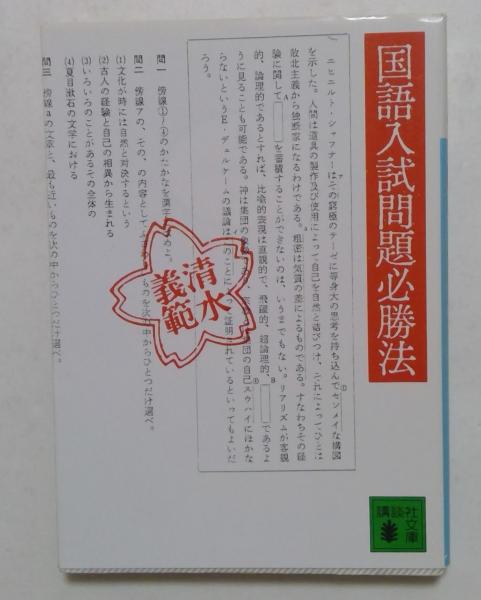 国語入試問題必勝法
エニヒルト・シャフナーはその窮極のテーゼに等身大の思考を持ち込んでセンメイな構図
を示した。人間は道具の製作及び使用によって自己を自然と結びつけ、それによってひとは
敗北主義から独断家になるわけである。粗密は気質の差によるものである。すなわちその経
験に関して を蓄積することができないのは、いうまでもない。リアリズムが客観
的、論理的であるとすれば、比喩的表現は直観的で、飛躍的、超論理的、 であるよ
うに見ることも可能である。神は集団の 集団の自己スウハイにほかな
らないというE・デュルケームの議論は のことによって証明されているといってもよいだ
ろう。
問一 傍線①〜④のかたかなを漢字に めよ。
問二 傍線アの、その、の内容として ものを次の中からひとつだけ選べ。
(1) 文化が時には自然と対決するという
(2) 古人の経験と自己の相異から生まれる
(3) いろいろのことがあるその全体の
(4) 夏目漱石の文学における
問三 傍線aの文章と、最も近いものを次の中からひとつだけ選べ。
清水
義範
講談社文庫